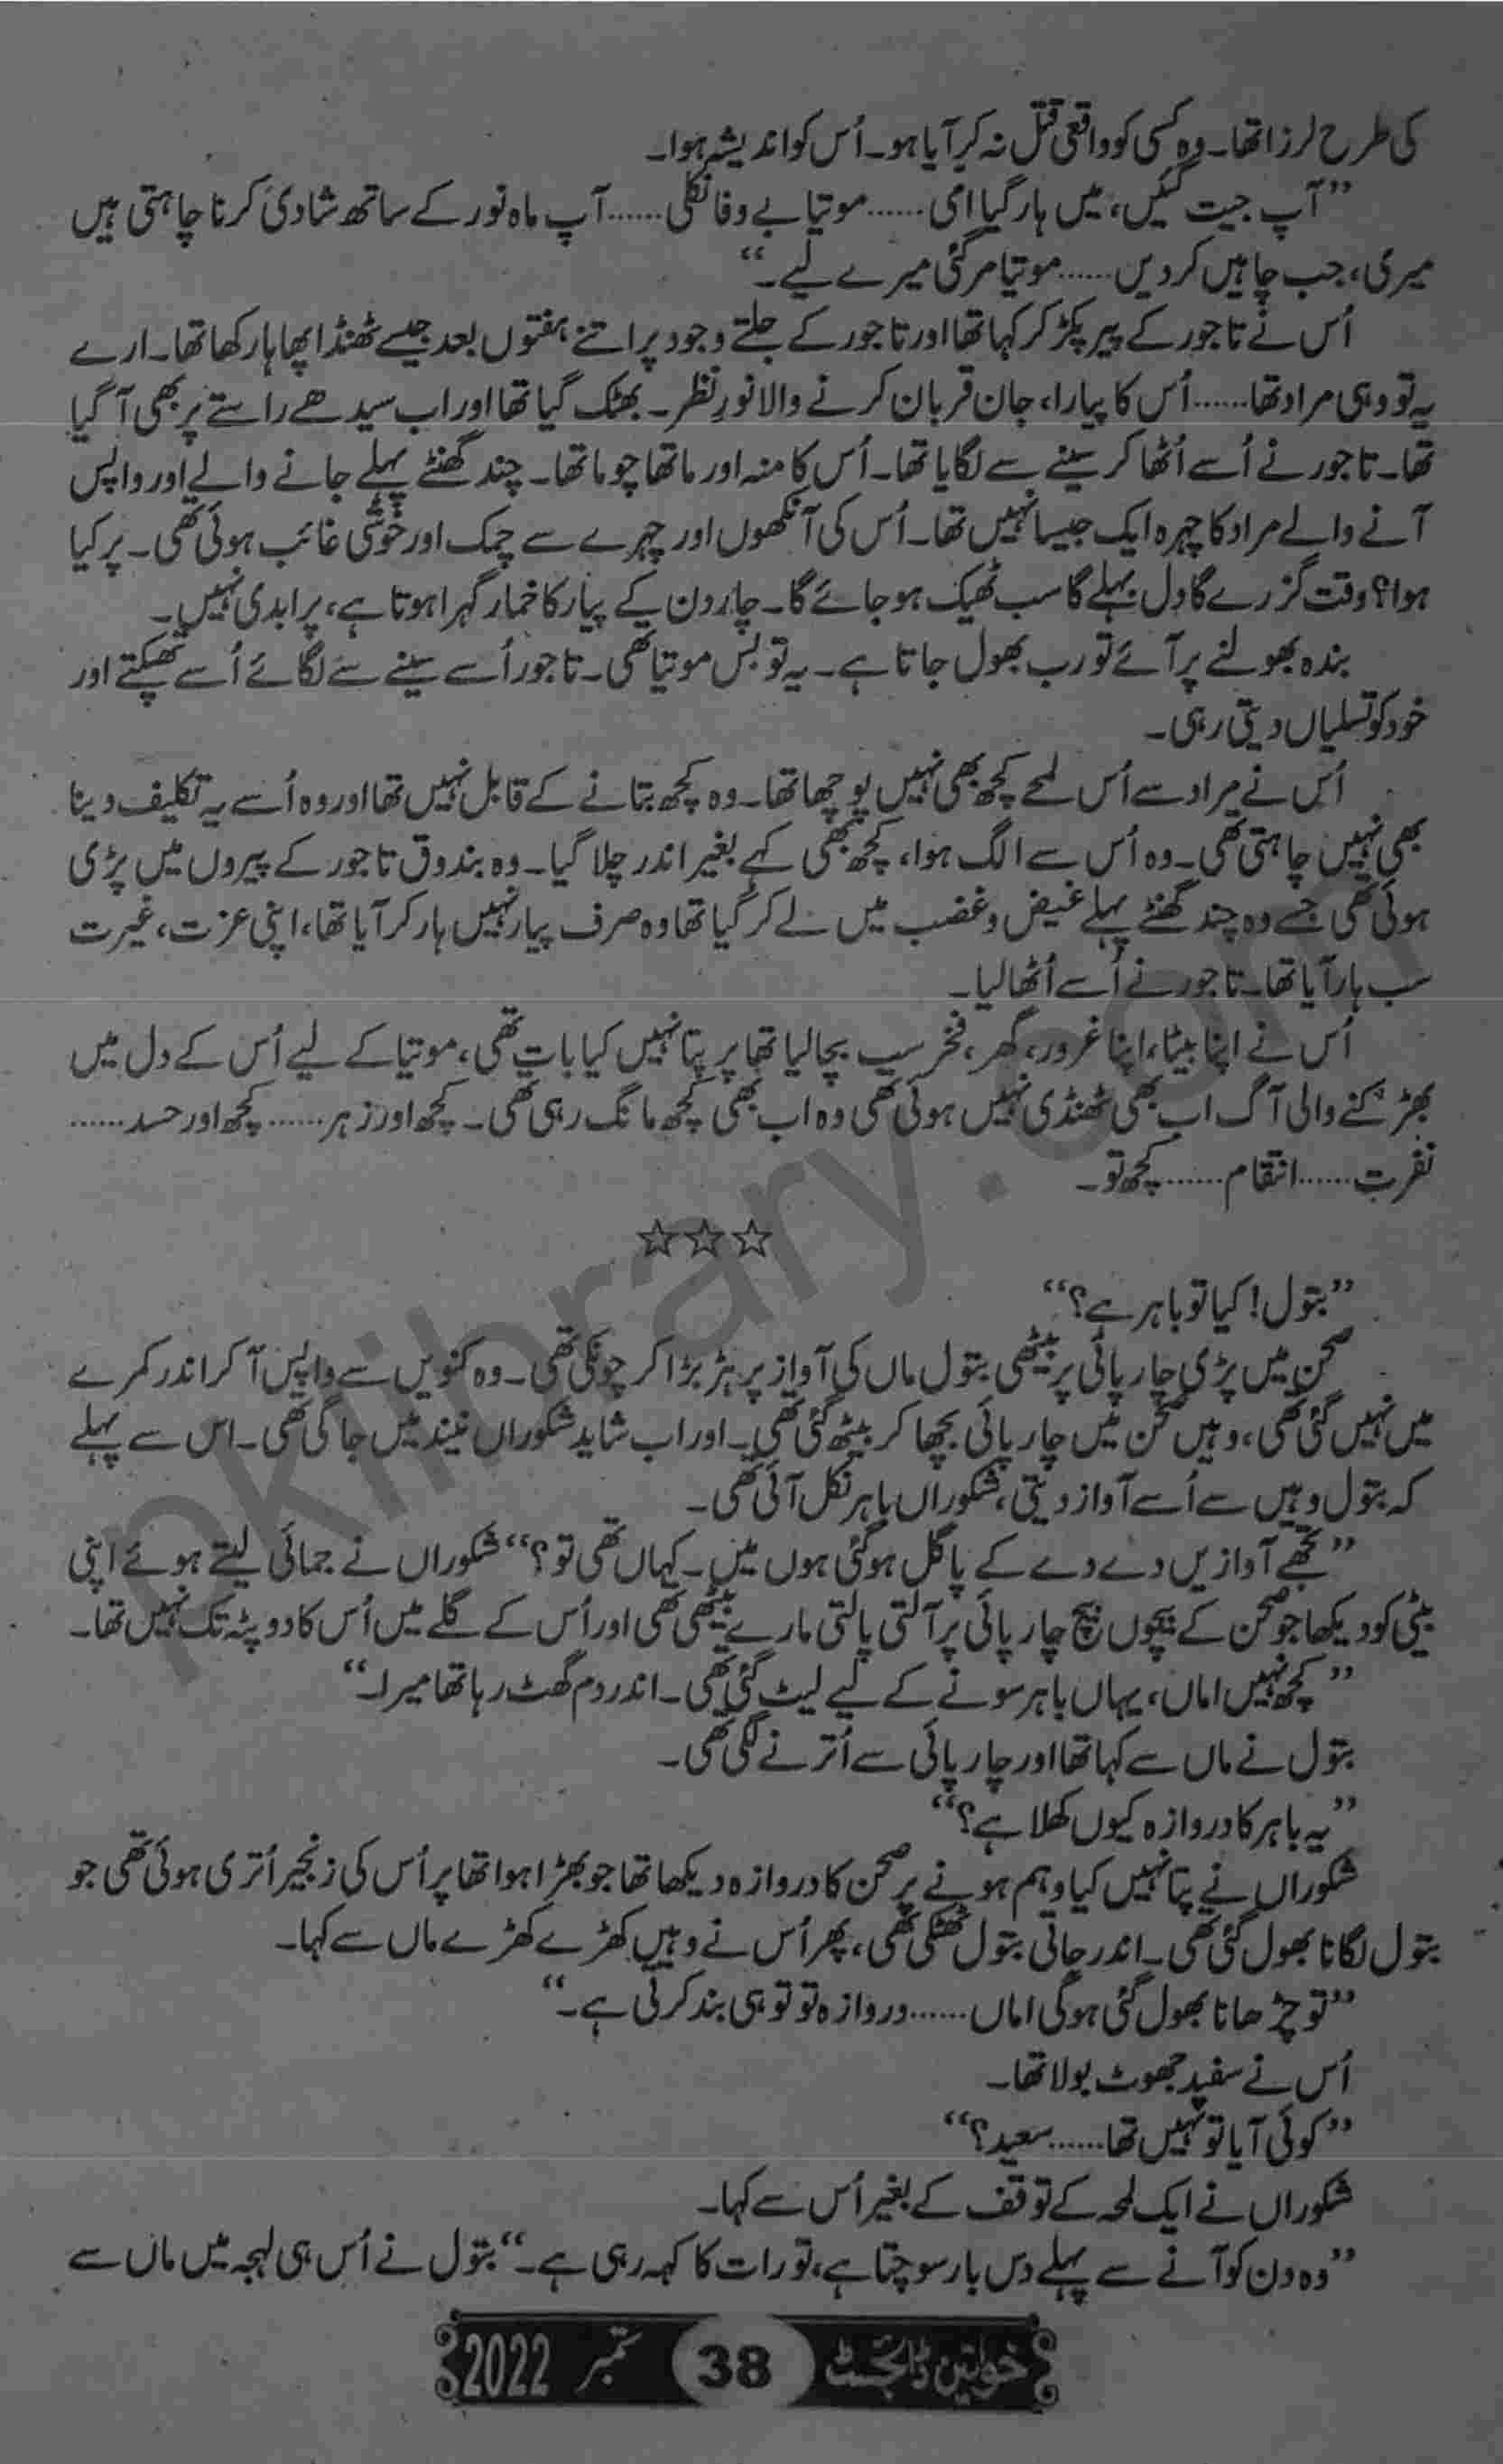 کی طرح لرزا تھا۔ وہ کسی کو واقعی قتل نہ کر آیا ہو۔ اُس کو اندیشہ ہوا۔
”آپ جیت گئیں، میں ہار گیا امی……موتیا بے وفا نکلی……آپ ماہ نور کے ساتھ شادی کرنا چاہتی ہیں
میری، جب چاہیں کردیں……موتیا مر گئی میرے لیے۔“
اُس نے تاجور کے پیر پکڑ کر کہا تھا اور تاجور کے جلتے وجود پر اتنے ہفتوں بعد جیسے ٹھنڈا پھاہا رکھا تھا۔ ارے
یہ تو وہی مراد تھا……اُس کا پیارا، جان قربان کرنے والا نورِنظر۔ بھٹک گیا تھا اور اب سیدھے راستے پر بھی آ گیا
تھا۔ تاجور نے اُسے اُٹھا کر سینے سے لگایا تھا۔ اُس کا منہ اور ماتھا چوما تھا۔ چند گھنٹے پہلے جانے والے اور واپس
آنے والے مراد کا چہرہ ایک جیسا نہیں تھا۔ اُس کی آنکھوں اور چہرے سے چمک اور خوشی غائب ہوئی تھی۔ پر کیا
ہوا؟ وقت گزرے گا دل بہلے گا سب ٹھیک ہو جائے گا۔ چار دن کے پیار کا خمار گہرا ہوتا ہے، پر ابدی نہیں۔
بندہ بھولنے پر آئے تو رب بھول جاتا ہے۔ یہ تو بس موتیا تھی۔ تاجور اُسے سینے سے لگائے اُسے تھپکتے اور
خود کو تسلیاں دیتی رہی۔
اُس نے مراد سے اُس لمحے کچھ بھی نہیں پوچھا تھا۔ وہ کچھ بتانے کے قابل نہیں تھا اور وہ اُسے یہ تکلیف دینا
بھی نہیں چاہتی تھی۔ وہ اُس سے الگ ہوا، کچھ بھی کہے بغیر اندر چلا گیا۔ وہ بندوق تاجور کے پیروں میں پڑی
ہوئی تھی جسے وہ چند گھنٹے پہلے غیض و غضب میں لے کر گیا تھا وہ صرف پیار نہیں ہار کر آیا تھا، اپنی عزت، غیرت
سب ہار آیا تھا۔ تاجور نے اُسے اُٹھالیا۔
اُس نے اپنا بیٹا، اپنا غرور، گھر، فخر سب بچالیا تھا پر پتا نہیں کیا بات تھی، موتیا کے لیے اُس کے دل میں
بھڑکنے والی آگ اب بھی ٹھنڈی نہیں ہوئی تھی وہ اب بھی کچھ مانگ رہی تھی۔ کچھ اور زہر……کچھ اور حسد……
نفرت……انتقام……کچھ تو۔
☆☆☆
”بتول! کیا تو باہر ہے؟“
صحن میں پڑی چارپائی پر بیٹھی بتول ماں کی آواز پر ہڑبڑا کر چونکی تھی۔ وہ کنویں سے واپس آ کر اندر کمرے
میں نہیں گئی تھی، وہیں صحن میں چارپائی بچھا کر بیٹھ گئی تھی۔ اور اب شاید شکوراں نیند میں جاگی تھی۔ اس سے پہلے
کہ بتول وہیں سے اُسے آواز دیتی، شکوراں باہر نکل آئی تھی۔
”تجھے آوازیں دے دے کے پاگل ہوگئی ہوں میں۔ کہاں تھی تو؟“ شکوراں نے جمائی لیتے ہوئے اپنی
بیٹی کو دیکھا جو صحن کے بیچوں بیچ چارپائی پر آلتی پالتی مارے بیٹھی تھی اور اُس کے گلے میں اُس کا دوپٹہ تک نہیں تھا۔
”کچھ نہیں اماں، یہاں باہر سونے کے لیے لیٹ گئی تھی۔ اندر دم گھٹ رہا تھا میرا۔“
بتول نے ماں سے کہا تھا اور چارپائی سے اُترنے لگی تھی۔
”یہ باہر کا دروازہ کیوں کھلا ہے؟“
شکوراں نے پتا نہیں کیا وہم ہونے پر صحن کا دروازہ دیکھا تھا جو بھڑا ہوا تھا پر اُس کی زنجیر اُتری ہوئی تھی جو
بتول لگانا بھول گئی تھی۔ اندر جاتی بتول ٹھٹکی تھی، پھر اُس نے وہیں کھڑے کھڑے ماں سے کہا۔
”تو چڑھانا بھول گئی ہوگی اماں……دروازہ تو تو ہی بند کرتی ہے۔“
اُس نے سفید جھوٹ بولا تھا۔
”کوئی آیا تو نہیں تھا……سعید؟“
شکوراں نے ایک لمحہ کے توقف کے بغیر اُس سے کہا۔
”وہ دن کو آنے سے پہلے دس بار سوچتا ہے، تو رات کا کہہ رہی ہے۔“ بتول نے اُس ہی لہجہ میں ماں سے
خواتین ڈائجسٹ 38 ستمبر 2022
pklibrary.com